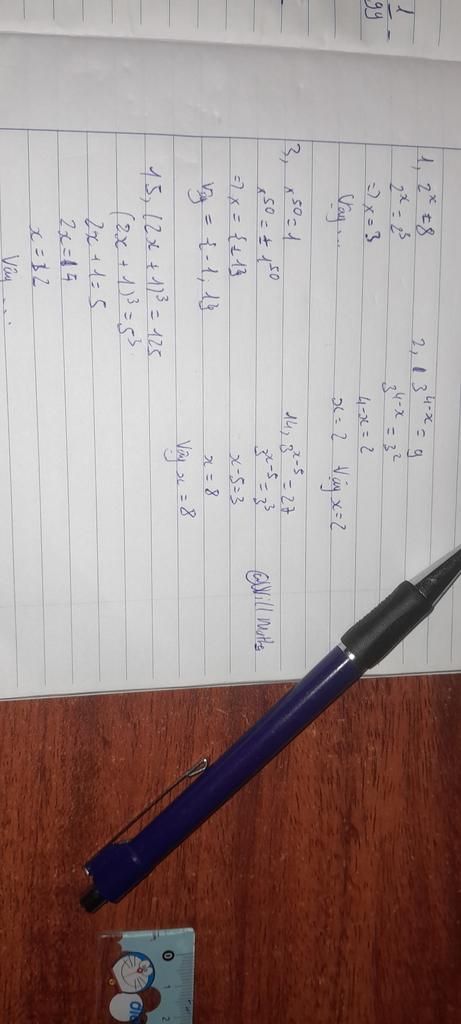 1
99
1, 2^x = 8
2^x = 2^3
=> x = 3
Vậy ...
2, 3^{4-x} = 9
3^{4-x} = 3^2
4-x = 2
x = 2 Vậy x = 2
3, x^{50} = 1
x^{50} = ± 1^{50}
=> x = {±1}
Vậy = {-1; 1}
14, 3^{x-5} = 27
3^{x-5} = 3^3
x-5 = 3
x = 8
Vậy x = 8
15, (2x + 1)^3 = 125
(2x + 1)^3 = 5^3
2x + 1 = 5
2x = 4
x = 2
Vậy ...
0 1 2